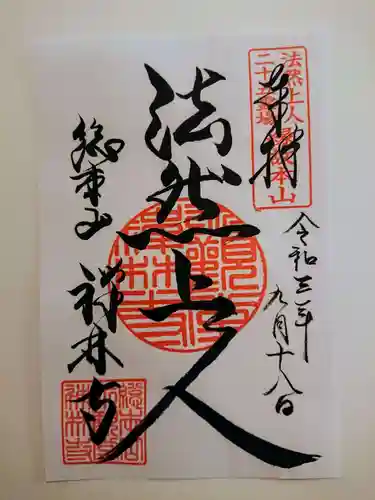 奉拝
法然上人
二十五霊場
縁本山
令和三年
九月十八日
法然上人
総本山
禅林寺